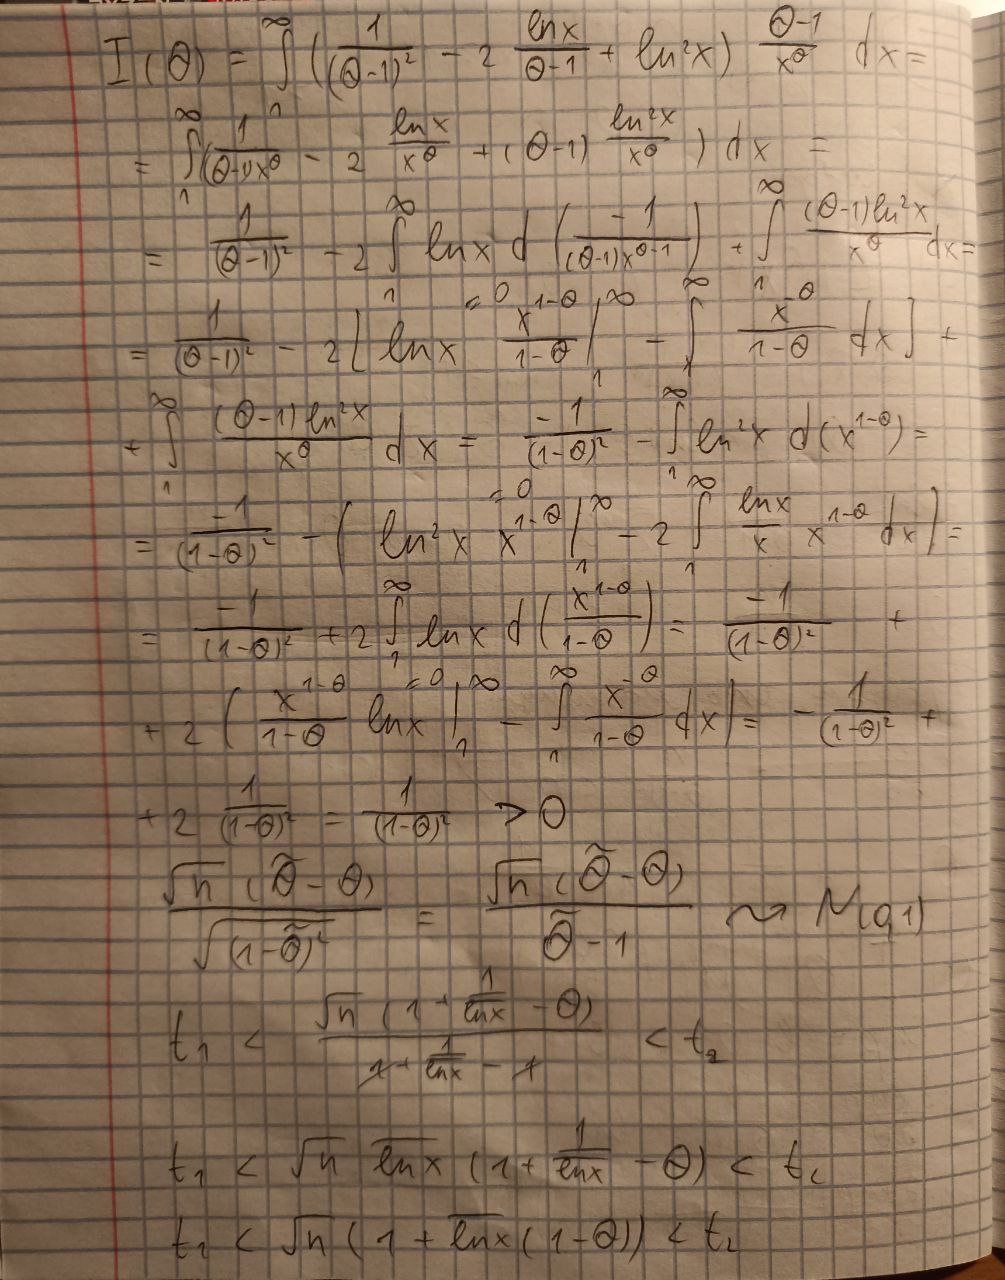 I(θ) = ∫₁^∞ (1/(θ-1)² - 2 lnx/(θ-1) + ln²x) (θ-1)/x^θ dx =
= ∫₁^∞ (1/((θ-1)x^θ) - 2 lnx/x^θ + (θ-1) ln²x/x^θ) dx =
= 1/(θ-1)² - 2 ∫₁^∞ lnx d(-1/((θ-1)x^(θ-1))) + ∫₁^∞ (θ-1)ln²x/x^θ dx =
= 1/(θ-1)² - 2[lnx x^(1-θ)/(1-θ) |₁^∞ (=0) - ∫₁^∞ x^(-θ)/(1-θ) dx] +
+ ∫₁^∞ (θ-1)ln²x/x^θ dx = -1/(1-θ)² - ∫₁^∞ ln²x d(x^(1-θ)) =
= -1/(1-θ)² - (ln²x x^(1-θ) |₁^∞ (=0) - 2 ∫₁^∞ lnx/x x^(1-θ) dx) =
= -1/(1-θ)² + 2 ∫₁^∞ lnx d(x^(1-θ)/(1-θ)) = -1/(1-θ)² +
+ 2 (x^(1-θ)/(1-θ) lnx |₁^∞ (=0) - ∫₁^∞ x^(-θ)/(1-θ) dx) = - 1/(1-θ)² +
+ 2 1/(1-θ)² = 1/(1-θ)² > 0
√n (θ̃ - θ)/√((1-θ̃)²) = √n (θ̃ - θ)/(θ̃ - 1) ⇝ N(0,1)
t₁ < √n (1 + 1/l̅n̅x̅ - θ)/(1 + 1/l̅n̅x̅ - 1) < t₂
t₁ < √n l̅n̅x̅ (1 + 1/l̅n̅x̅ - θ) < t₂
t₁ < √n (1 + l̅n̅x̅ (1-θ)) < t₂